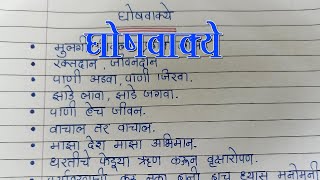 घोषवाक्ये
मुलगी
घोषवाक्ये
रक्तदान, जीवनदान
पाणी अडवा, पाणी जिरवा.
झाडे लावा, झाडे जगवा.
पाणी हेच जीवन.
वाचाल तर वाचाल.
माझा देश माझा अभिमान.
धरतीचे फेडूया ऋण करून वृक्षारोपण.